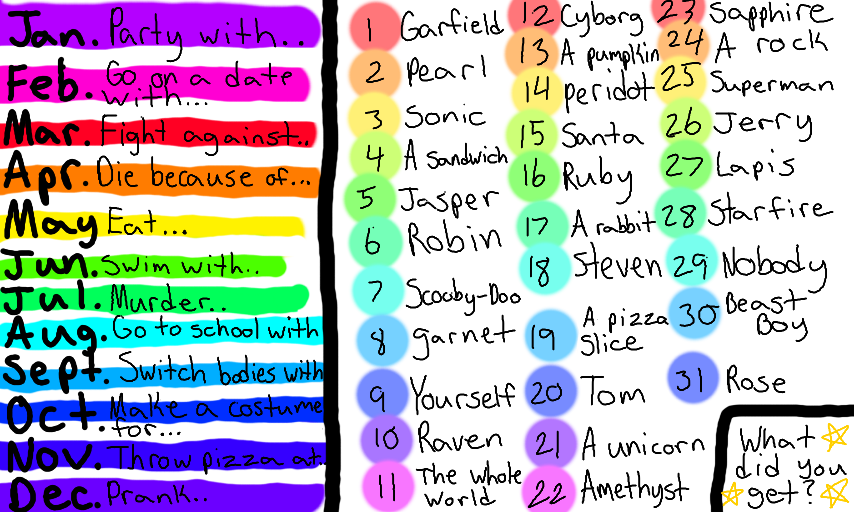 Jan. Party with..
Feb. Go on a date
with...
Mar. Fight against..
Apr. Die because of...
May Eat...
Jun. Swim with..
Jul. Murder..
Aug. Go to school with
Sept. Switch bodies with
Oct. Make a costume
for...
Nov. Throw pizza at..
Dec. Prank..
1 Garfield
2 Pearl
3 Sonic
4 A sandwich
5 Jasper
6 Robin
7 Scooby-Doo
8 garnet
9 Yourself
10 Raven
11 The whole
world
12 Cyborg
13 A pumpkin
14 peridot
15 Santa
16 Ruby
17 A rabbit
18 Steven
19 A pizza
slice
20 Tom
21 A unicorn
22 Amethyst
23 Sapphire
24 A rock
25 Superman
26 Jerry
27 Lapis
28 Starfire
29 Nobody
30 Beast
Boy
31 Rose
What
did you
get?